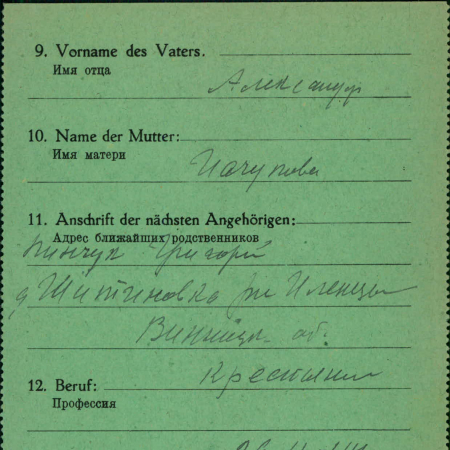 9. Vorname des Vaters.
Имя отца
Александр
10. Name der Mutter:
Имя матери
11. Anschrift der nächsten Angehörigen:
Адрес ближайших родственников
Пинчук Григорий
д Шитиновка рн Илинцы
Виниц. об.
12. Beruf:
Крестьянин
Профессия